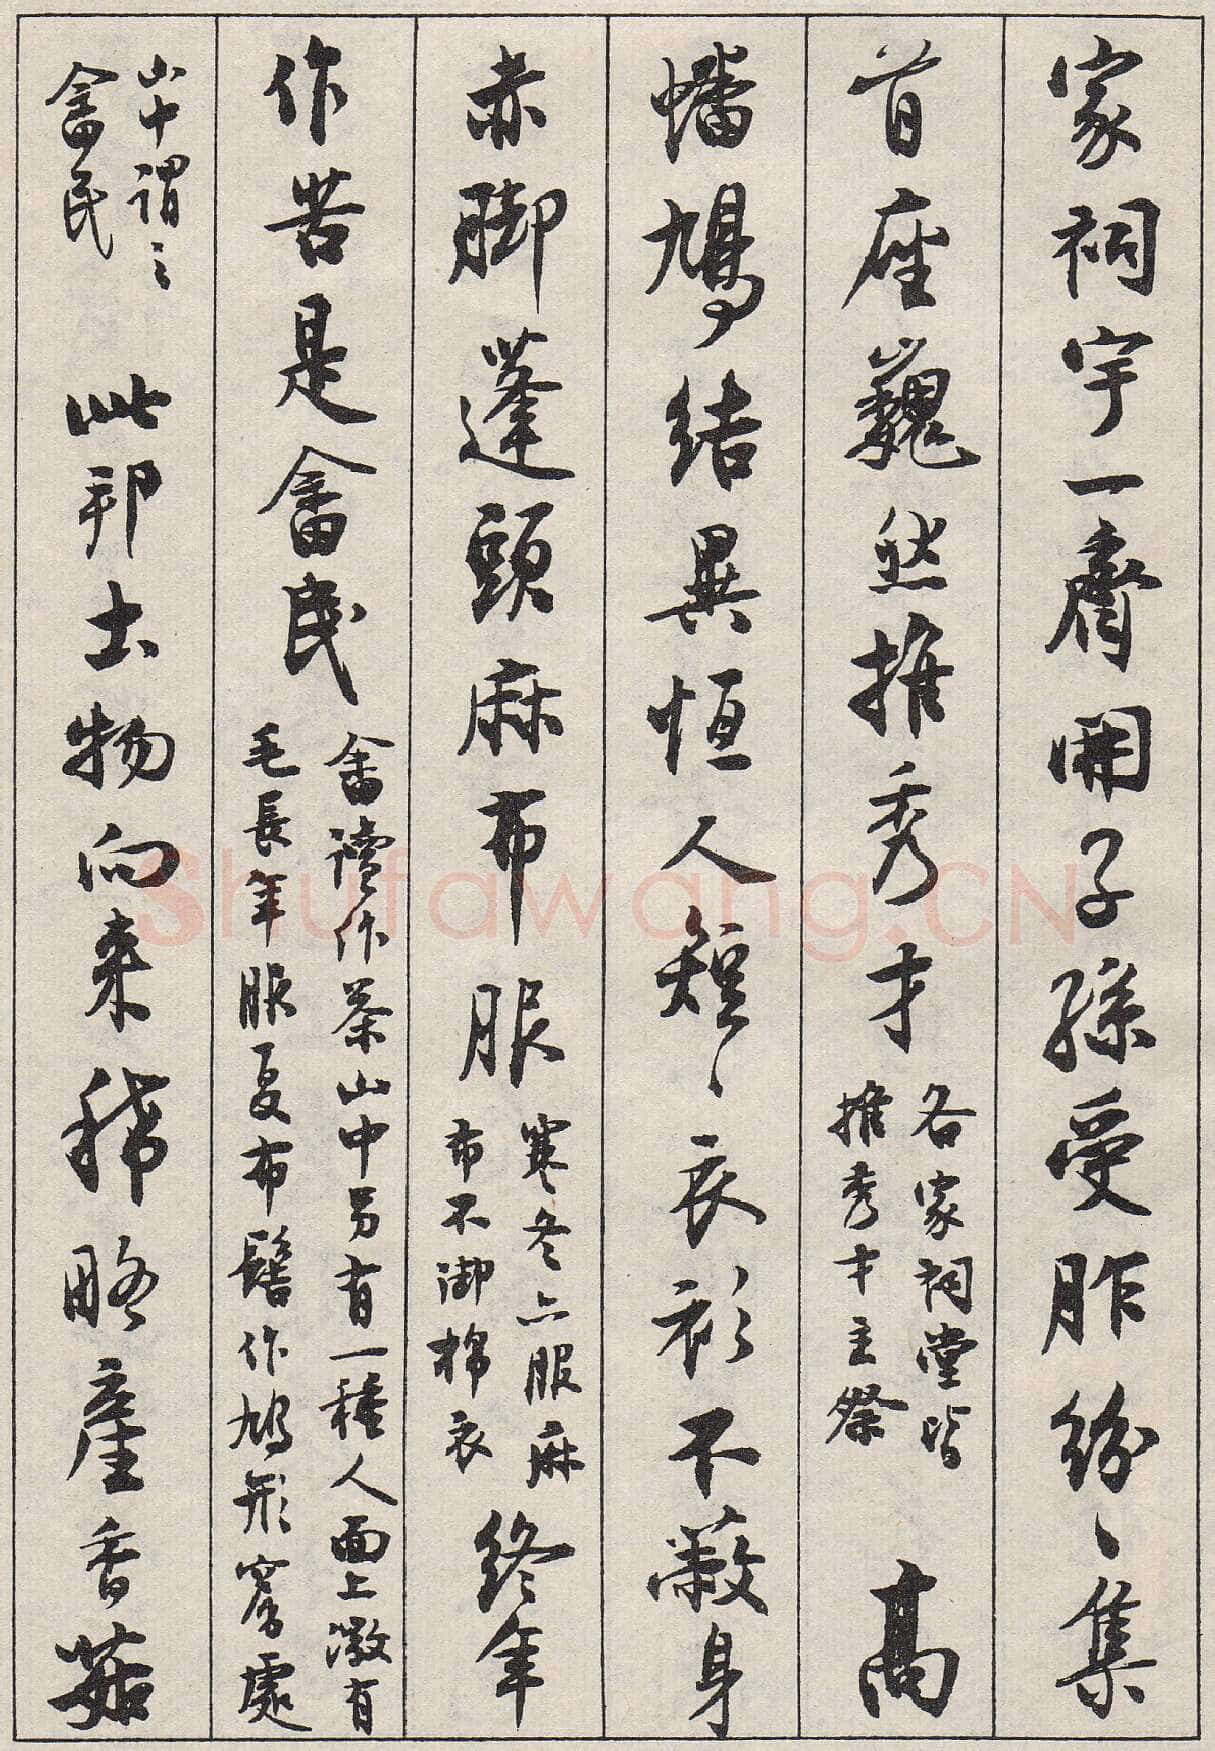 家祠宇一齊開子孫受胙紛〻集
首座巍然推秀才
各家祠堂皆
推秀才主祭
高
蟠鳩結異恒人短〻衣衫不蔽身
赤脚蓬頭麻布服
寒冬亦服麻
布不御棉衣
終年
作苦是畬民
畬讀作茶山中另有一種人面上微有
毛長年服夏布髻作鳩形窩處
山中謂之
畬民
此邦土物向来稀略產香菇
Shufawang.CN